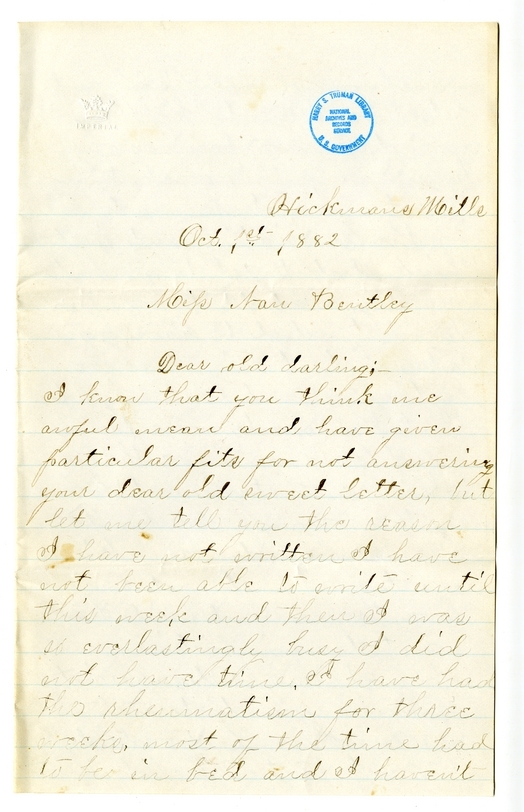 IMPERIAL
HARRY S. TRUMAN LIBRARY
NATIONAL
ARCHIVES AND
RECORDS
SERVICE
U. S. GOVERNMENT
Hickmans Mills
Oct. 1st 1882
Miss Nan Bentley
Dear old darling;-
I know that you think me
awful mean and have given
particular fits for not answering
your dear old sweet letter, but
let me tell you the reason
I have not written I have
not been able to write until
this week and then I was
so everlastingly busy I did
not have time. I have had
the rheumatism for three
weeks, most of the time had
to be in bed and I haven't